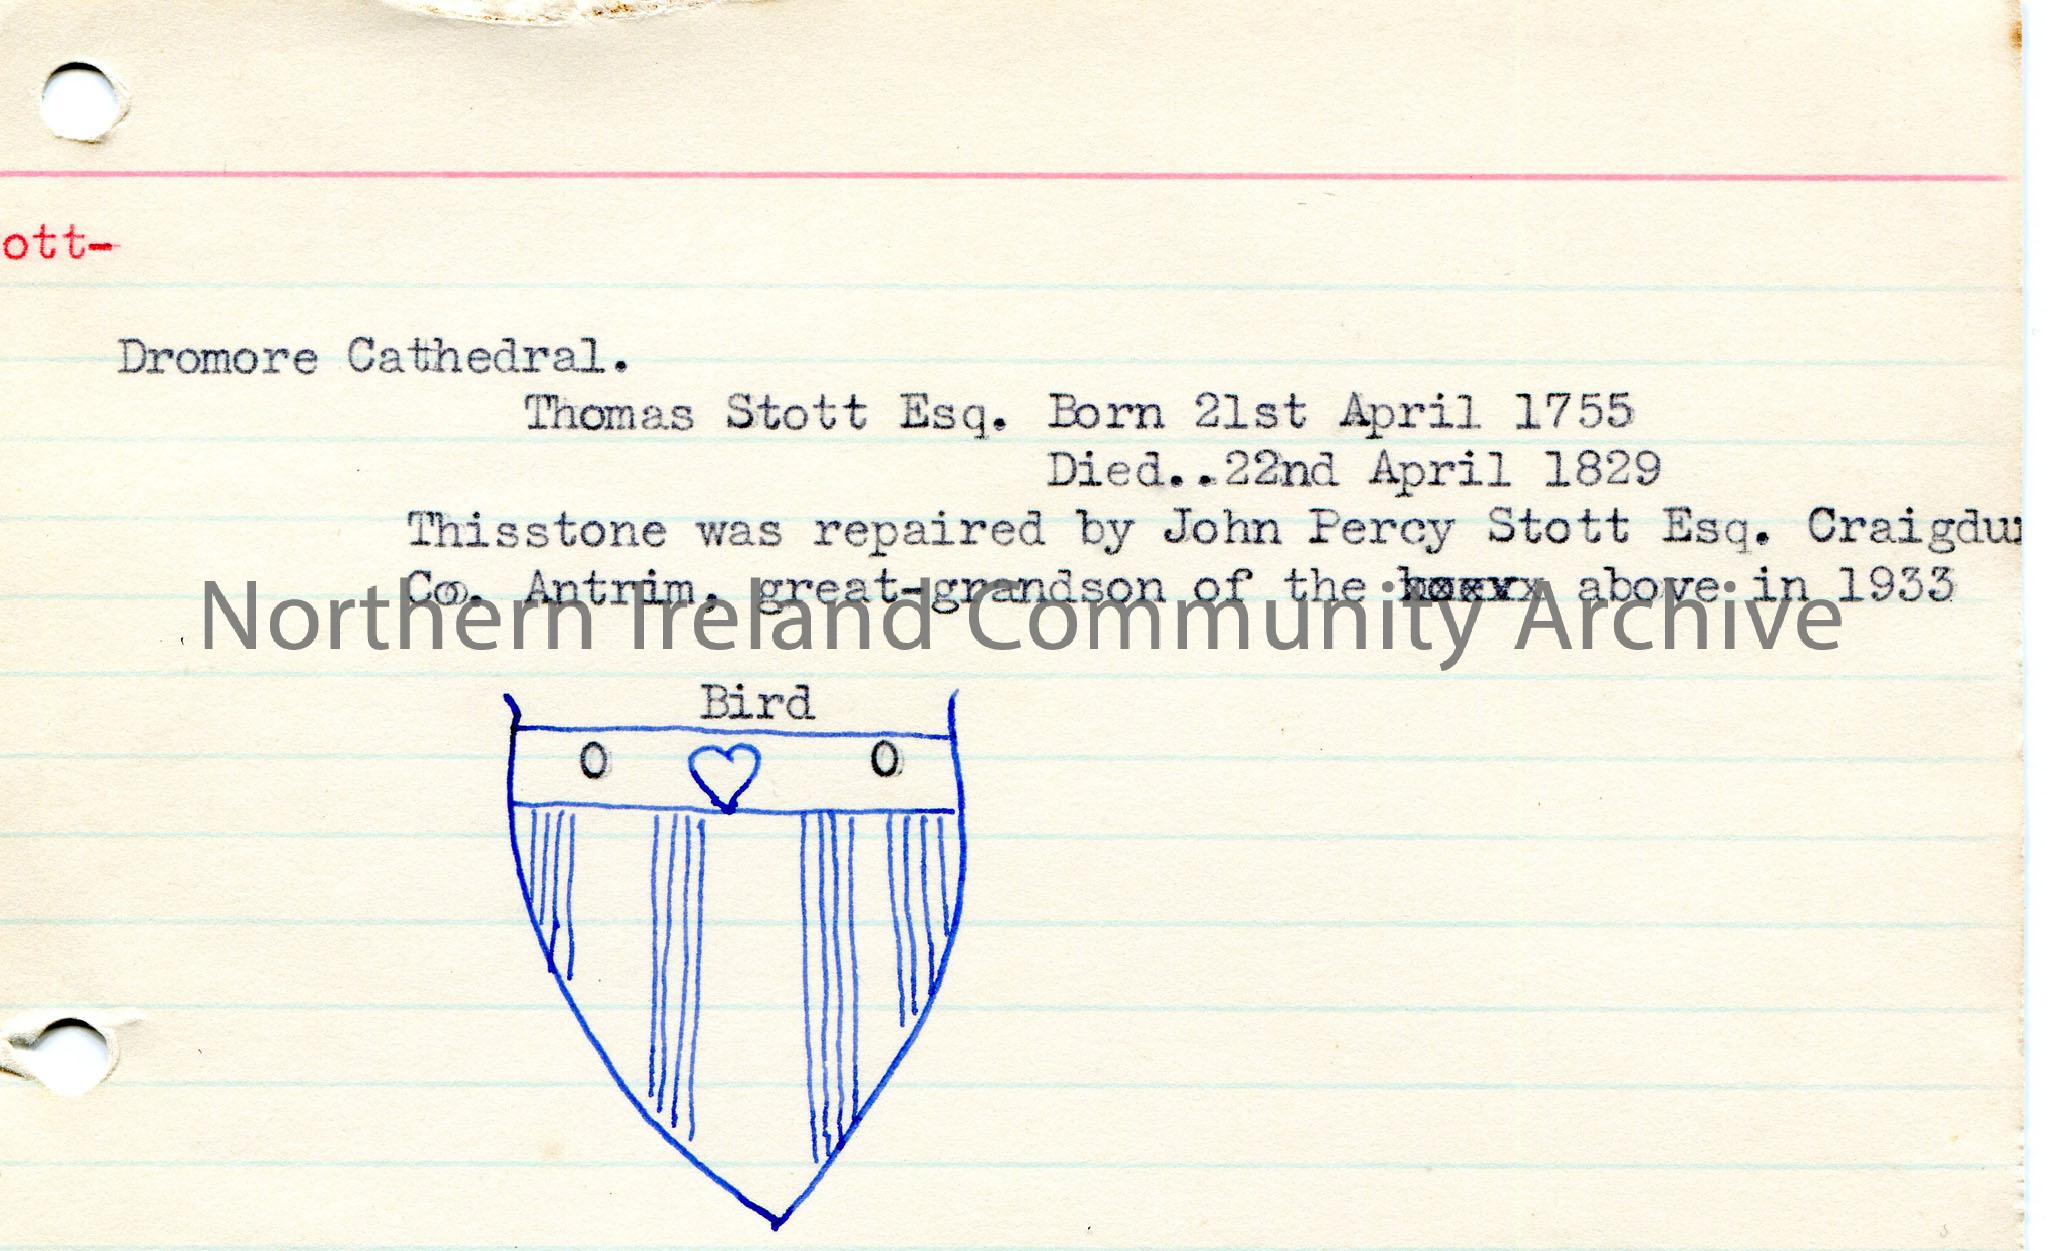 ott-
Dromore Cathedral.
Thomas Stott Esq. Born 21st April 1755
Died..22nd April 1829
Thisstone was repaired by John Percy Stott Esq. Craigdu
Co. Antrim, great-grandson of the above in 1933
Northern Ireland Community Archive
Bird
0 0